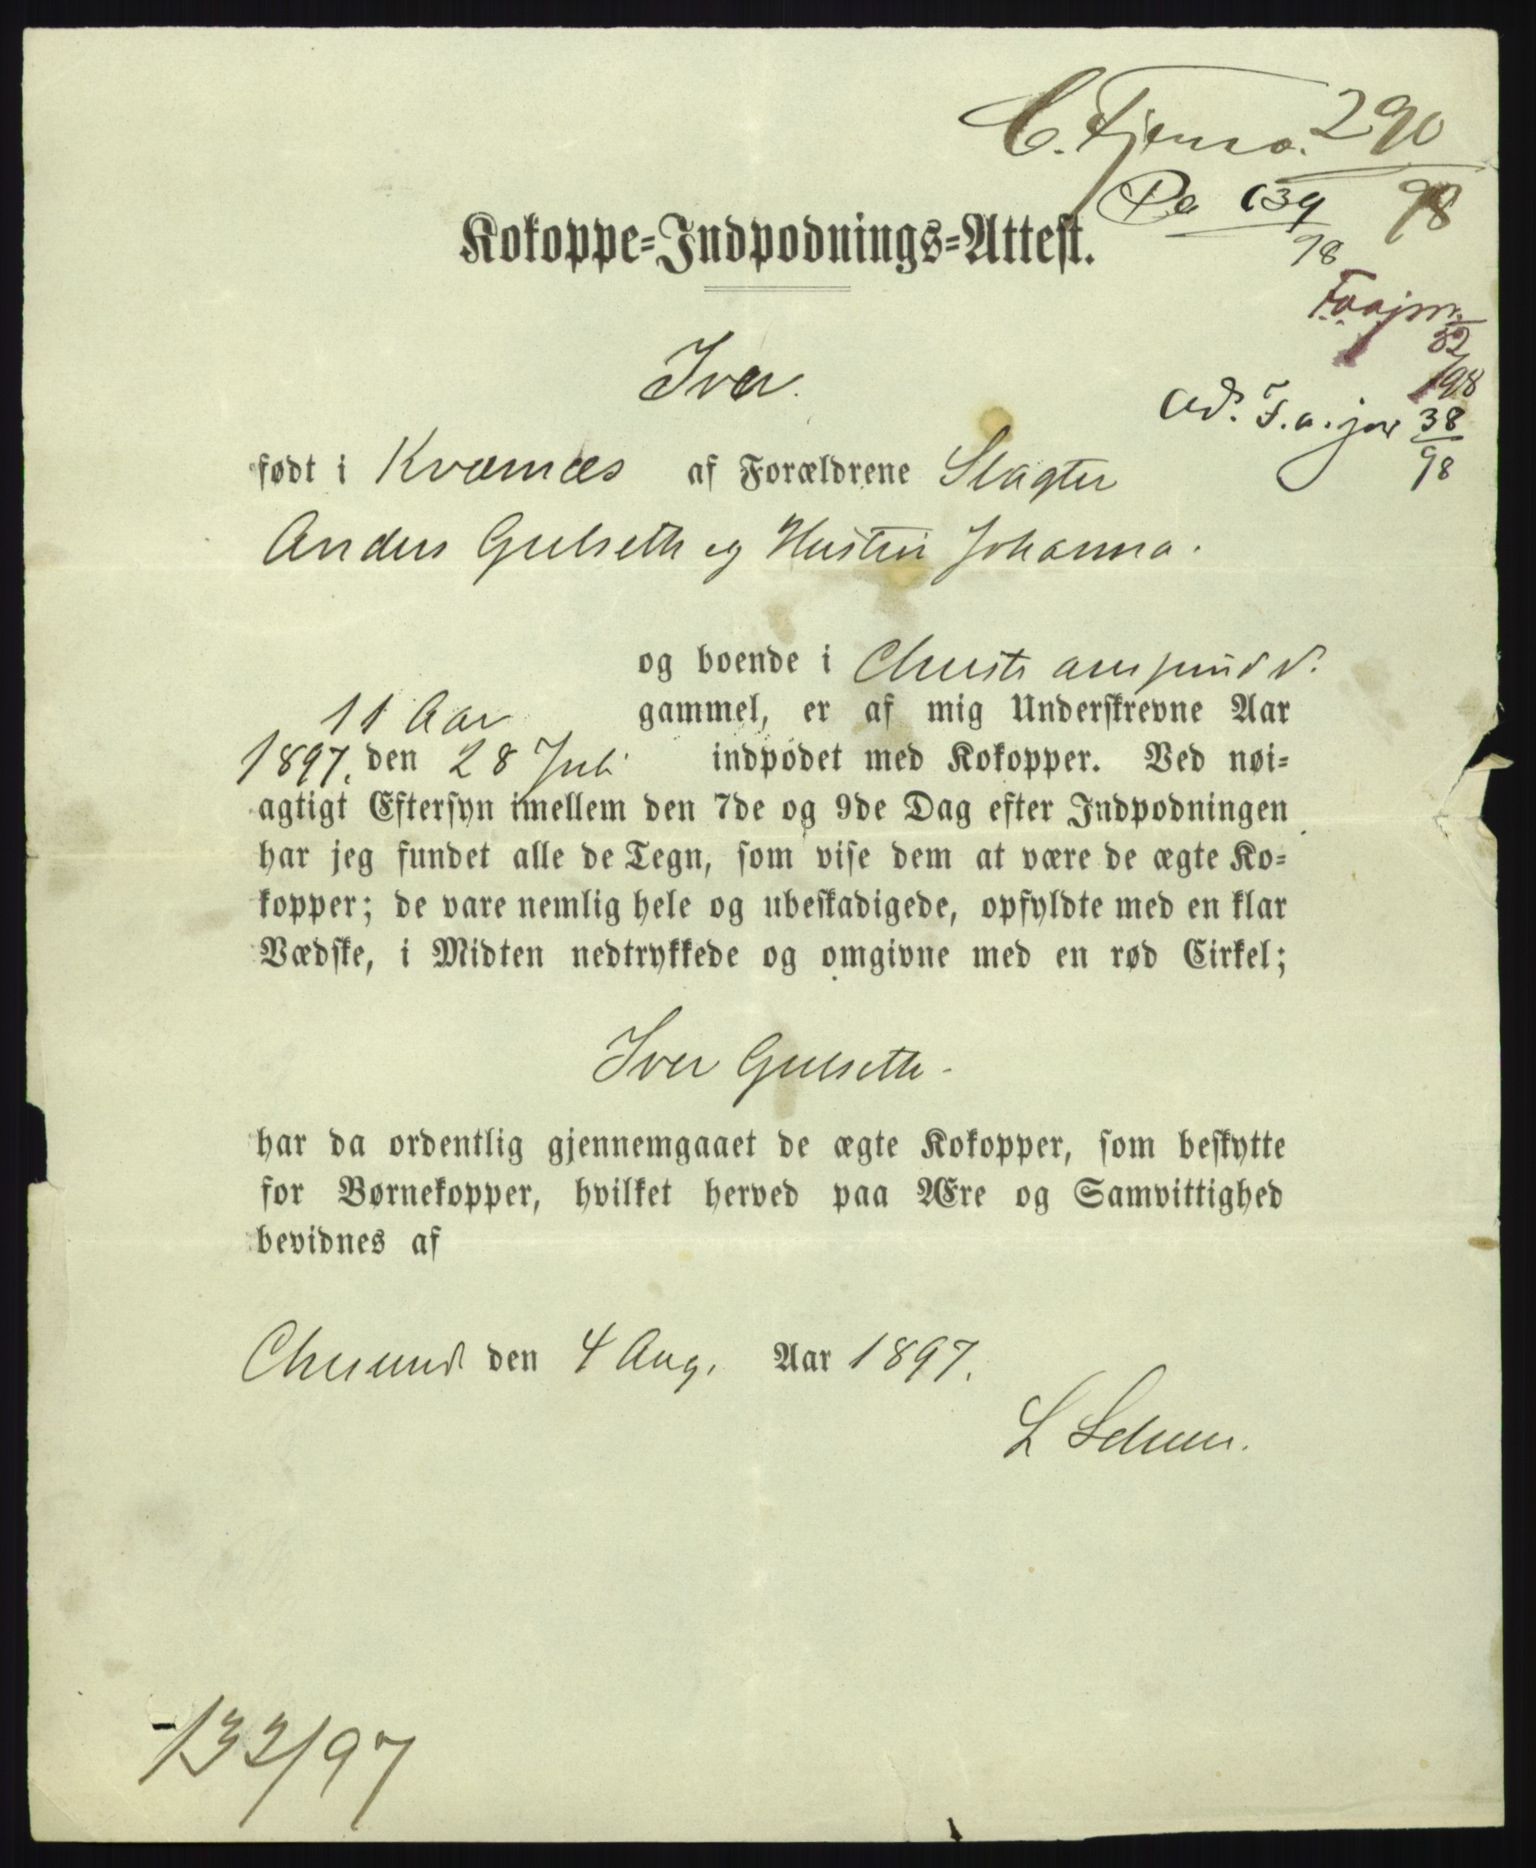 C. Tjenso. 290
98
Pa 139
98
Faajnr.
32
198
ad. F.a.jnr 38
98
Kokoppe-Indpodnings-Attest.
Iver.
født i Kværnæs af Forældrene Slagter
Anders Gulseth og Hustru Johanna.
og boende i Christiansund N.
11 Aar gammel, er af mig Underskrevne Aar
1897. den 28 Juli indpodet med Kokopper. Ved nøi-
agtigt Eftersyn imellem den 7de og 9de Dag efter Indpodningen
har jeg fundet alle de Tegn, som vise dem at være de ægte Ko-
kopper; de vare nemlig hele og ubeskadigede, opfyldte med en klar
Vædske, i Midten nedtrykkede og omgivne med en rød Cirkel;
Iver Gulseth.
har da ordentlig gjennemgaaet de ægte Kokopper, som beskytte
for Børnekopper, hvilket herved paa Ære og Samvittighed
bevidnes af
Chrsund den 4 Aug. Aar 1897.
L
133/97